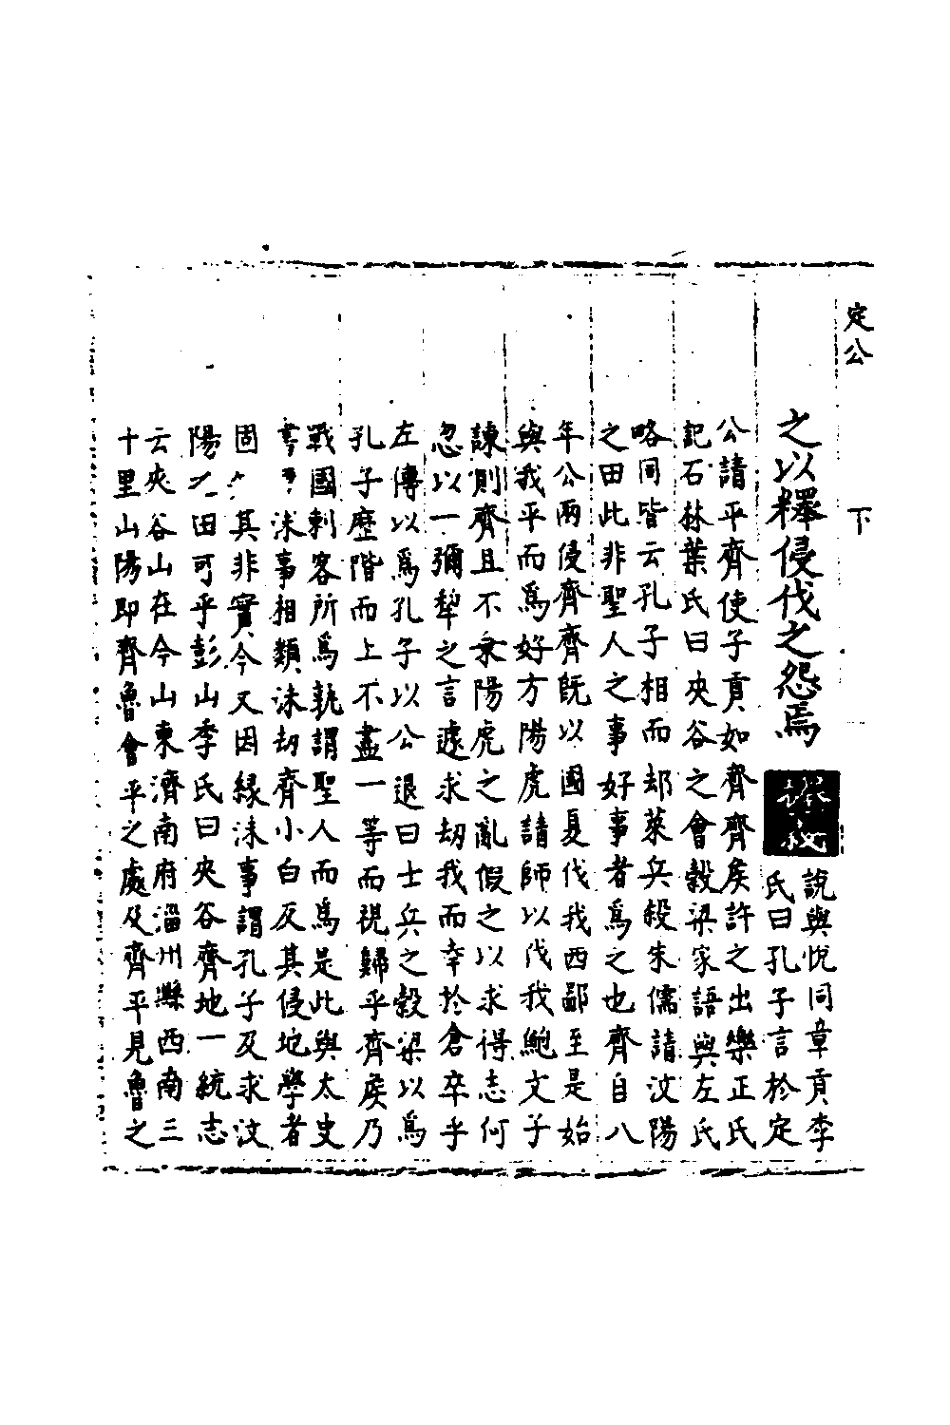 定公
下
之以釋侵伐之怨焉
說與悅同章貢李
氏曰孔子言於定
公請平齊使子貢如齊齊矦許之出樂正氏
記石林葉氏曰夾谷之會穀梁家語與左氏
略同皆云孔子相而却萊兵殺朱儒請汶陽
之田此非聖人之事好事者為之也齊自八
年公兩侵齊齊既以國夏伐我西鄙至是始
與我平而為好方陽虎請師以伐我鮑文子
諫則齊且不衷陽虎之亂假之以求得志何
忽以一彌犂之言遽求刧我而幸於倉卒乎
左傳以為孔子以公退曰士兵之穀梁以為
孔子歷階而上不盡一等而視歸乎齊矦乃
戰國刺客所為孰謂聖人而為是此與太史
沬事相類沬刧齊小白反其侵地學者
固其非實今又因緣沬事謂孔子及求汶
陽田可乎彭山季氏曰夾谷齊地一統志
云夾谷山在今山東濟南府淄州縣西南三
十里山陽即齊魯會平之處及齊平見魯之